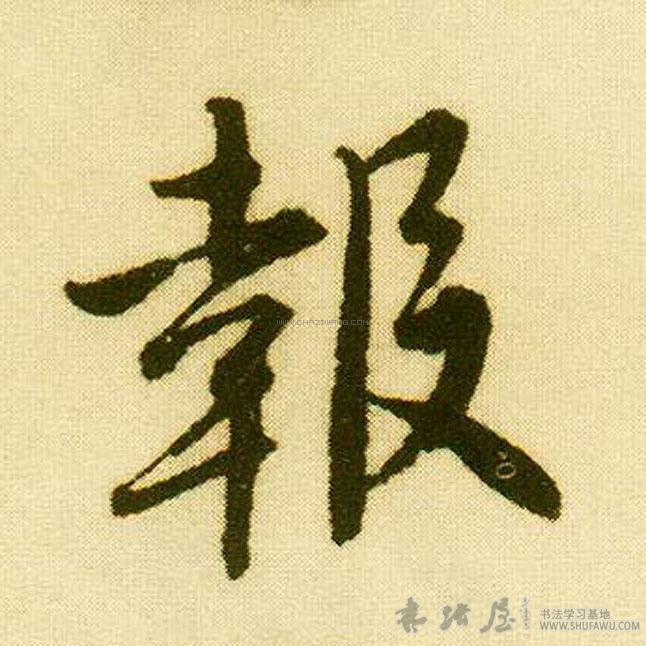 報
WWW.CHAZIWANG.COM
书法屋
书法学习基地
WWW.SHUFAWU.COM